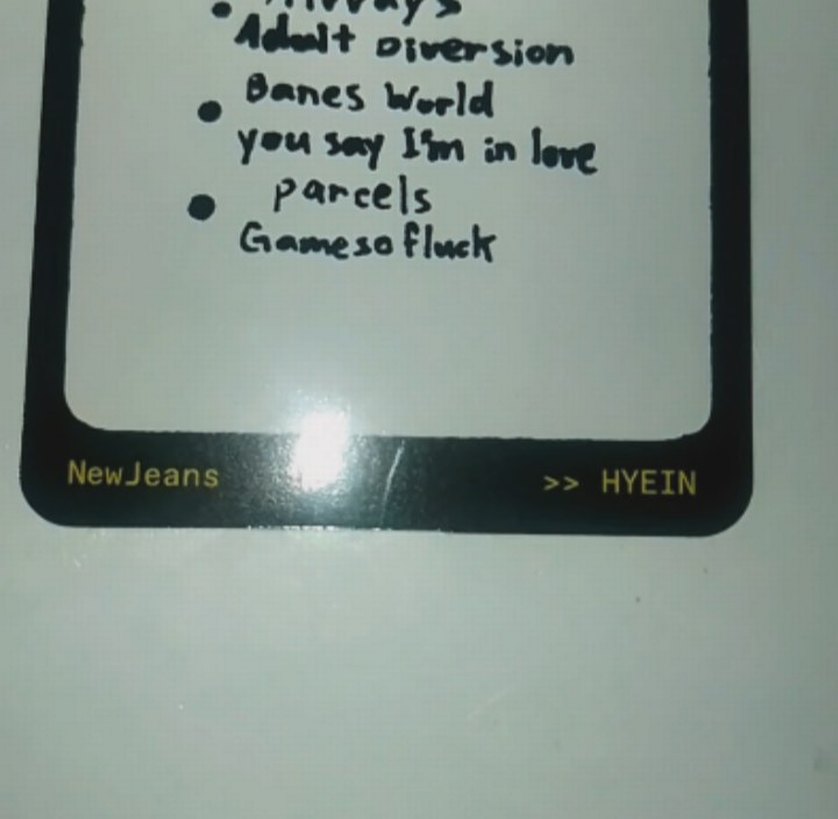 Alvvays
Adult Diversion
Banes World
you say I'm in love
parcels
Gamesofluck
NewJeans
>> HYEIN